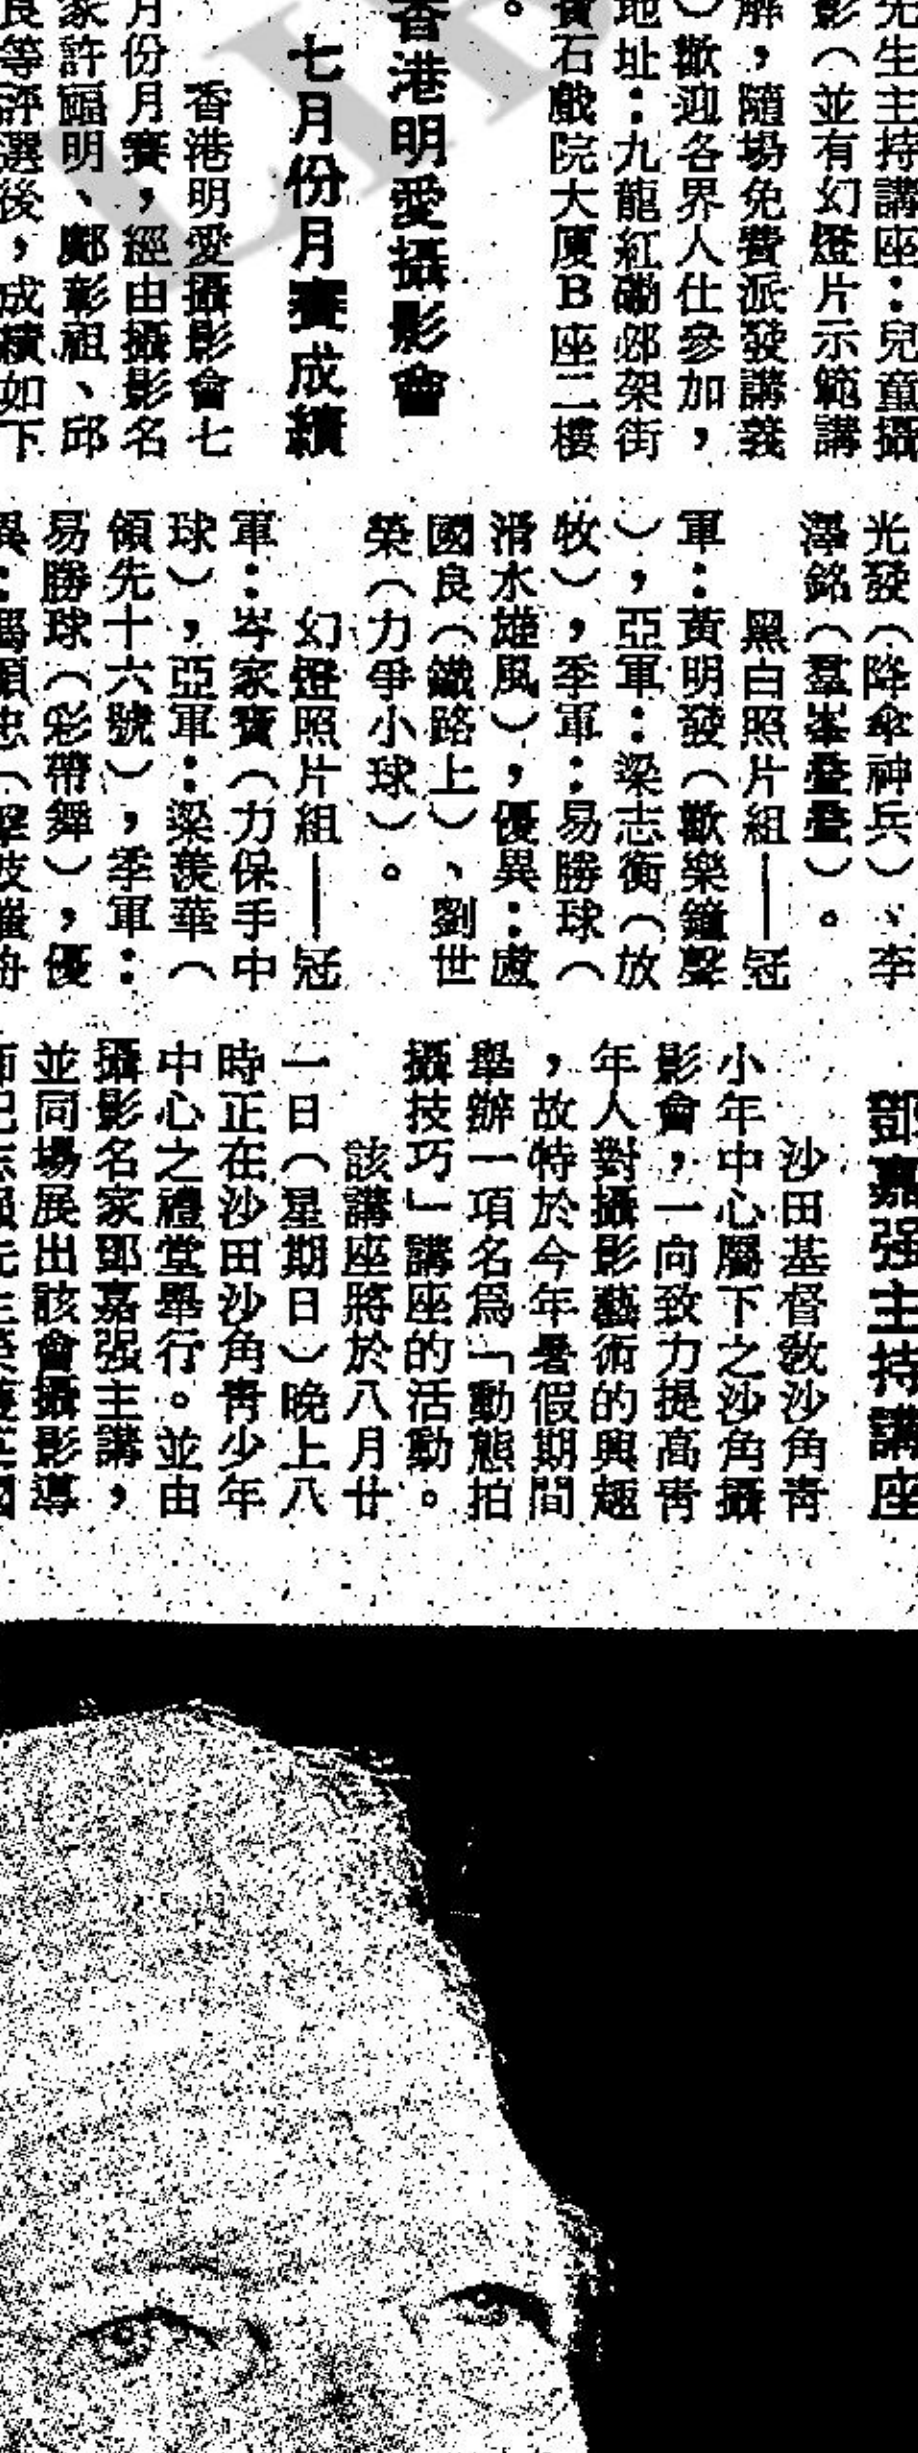 先生主持講座：兒童攝
影（並有幻燈片示範講
解，隨場免費派發講義
）歡迎各界人仕參加，
地址：九龍紅磡邨架街
寶石戲院大廈B座二樓
。
香港明愛攝影會
七月份月賽成績
香港明愛攝影會七
月份月賽，經由攝影名
家許臨明、鄭彰祖、邱
良等評選後，成績如下
光發（降傘神兵）、李
澤銘（羣峯疊疊）。
黑白照片組——冠
軍：黃明發（歡樂鐘聲
），亞軍：梁志衡（放
牧），季軍：易勝球（
滑水雄風），優異：盧
國良（鐵路上）、劉世
榮（力爭小球）。
幻燈照片組——冠
軍：岑家寶（力保手中
球），亞軍：梁羨華（
領先十六號），季軍：
易勝球（彩帶舞），優
異：馮順忠（
鄧嘉强主持講座
沙田基督教沙角靑
小年中心屬下之沙角攝
影會，一向致力提高靑
年人對攝影藝術的興趣
，故特於今年暑假期間
舉辦一項名爲「動態拍
攝技巧」講座的活動。
該講座將於八月廿
一日（星期日）晚上八
時正在沙田沙角靑少年
中心之禮堂舉行。並由
攝影名家鄧嘉强主講，
並同場展出該會攝影導